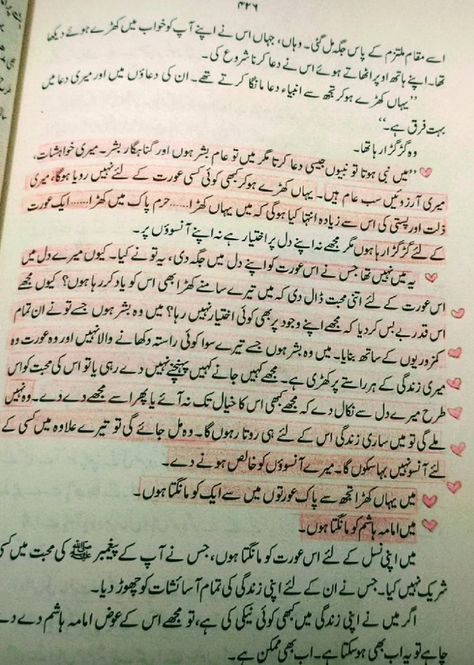 ۴۲۶
اسے مقام ملتزم کے پاس جگہ مل گئی۔ وہاں، جہاں اس نے اپنے آپ کو خواب میں کھڑے ہوئے دیکھا
تھا۔ اپنے ہاتھ اوپر اٹھاتے ہوئے اس نے دعا کرنا شروع کی۔
”یہاں کھڑے ہو کر تجھ سے انبیاء دعا مانگا کرتے تھے۔ ان کی دعاؤں میں اور میری دعا میں
بہت فرق ہے۔“
وہ گڑگڑا رہا تھا۔
”میں نبی ہوتا تو نبیوں جیسی دعا کرتا مگر میں تو عام بشر ہوں اور گناہگار بشر۔ میری خواہشات،
میری آرزوئیں سب عام ہیں۔ یہاں کھڑے ہو کر کبھی کوئی کسی عورت کے لئے نہیں رویا ہوگا، میری
ذلت اور پستی کی اس سے زیادہ انتہا کیا ہوگی کہ میں یہاں کھڑا...... حرم پاک میں کھڑا...... ایک عورت
کے لئے گڑگڑا رہا ہوں مگر مجھے نہ اپنے دل پر اختیار ہے نہ اپنے آنسوؤں پر۔
یہ میں نہیں تھا جس نے اس عورت کو اپنے دل میں جگہ دی، یہ تو نے کیا۔ کیوں میرے دل میں
اس عورت کے لئے اتنی محبت ڈال دی کہ میں تیرے سامنے کھڑا بھی اس کو یاد کر رہا ہوں؟ کیوں مجھے
اس قدر بے بس کر دیا کہ مجھے اپنے وجود پر بھی کوئی اختیار نہیں رہا؟ میں وہ بشر ہوں جسے تو نے ان تمام
کمزوریوں کے ساتھ بنایا۔ میں وہ بشر ہوں جسے تیرے سوا کوئی راستہ دکھانے والا نہیں اور وہ عورت وہ
میری زندگی کے ہر راستے پر کھڑی ہے۔ مجھے کہیں جانے کہیں پہنچنے نہیں دے رہی یا تو اس کی محبت کو اس
طرح میرے دل سے نکال دے کہ مجھے کبھی اس کا خیال تک نہ آئے یا پھر اسے مجھے دے دے۔ وہ نہیں
ملے گی تو میں ساری زندگی اس کے لئے ہی روتا رہوں گا۔ وہ مل جائے گی تو تیرے علاوہ میں کسی کے
لئے آنسو نہیں بہا سکوں گا۔ میرے آنسوؤں کو خالص ہونے دے۔
میں یہاں کھڑا تجھ سے پاک عورتوں میں سے ایک کو مانگتا ہوں۔
میں امامہ ہاشم کو مانگتا ہوں۔
میں اپنی نسل کے لئے اس عورت کو مانگتا ہوں، جس نے آپ کے پیغمبر ﷺ کی محبت میں کسی
شریک نہیں کیا۔ جس نے ان کے لئے اپنی زندگی کی تمام آسائشات کو چھوڑ دیا۔
اگر میں نے اپنی زندگی میں کبھی کوئی نیکی کی ہے، تو مجھے اس کے عوض امامہ ہاشم دے دے
چاہے تو یہ اب بھی ہو سکتا ہے۔ اب بھی ممکن ہے۔